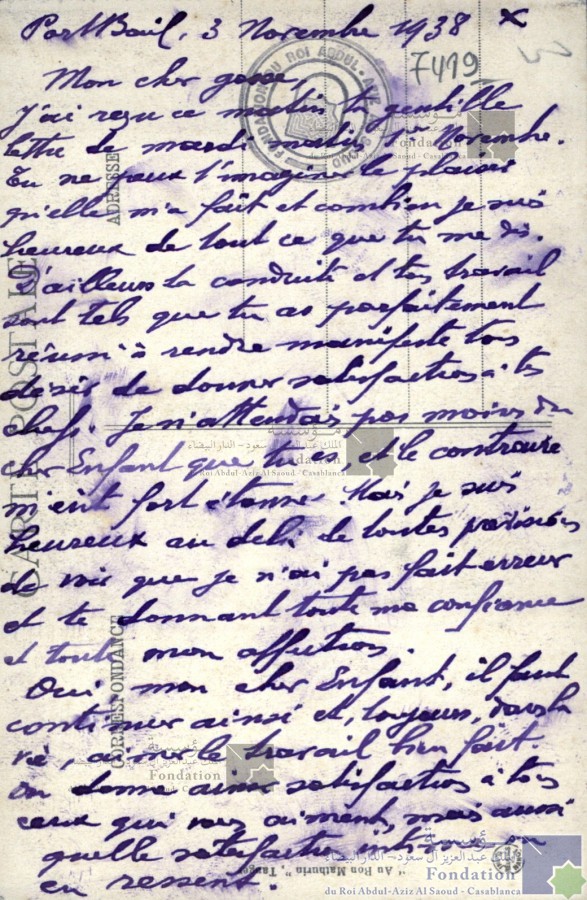 PortBail, 3 Novembre 1938 x
7419
Mon cher gosse,
J'ai reçu ce matin ta gentille
lettre de mardi matin 1er Novembre.
Tu ne peux t'imaginer le plaisir
qu'elle m'a fait et combien je suis
heureux de tout ce que tu me dis.
D'ailleurs ta conduite et ton travail
sont tels que tu as parfaitement
réussi à rendre manifeste ton
désir de donner satisfaction à tes
chefs. Je n'attendais pas moins du
cher Enfant que tu es, et le contraire
m'eût fort étonné. Mais je suis
heureux au delà de toutes prévisions
de voir que je n'ai pas fait erreur
et te donnant toute ma confiance
et toute mon affection.
Oui mon cher Enfant, il faut
continuer ainsi et, toujours, dans la
vie, aimer le travail bien fait.
On donne ainsi satisfaction à tous
ceux qui vous aiment, mais aussi
quelle satisfaction intime on
en ressent.
CARTE POSTALE
ADRESSE
CORRESPONDANCE
"Au Bon Mathurin" Tanger
FONDATION DU ROI ABDUL-AZIZ
مؤسسة
الملك عبد العزيز آل سعود - الدار البيضاء
Fondation
du Roi Abdul-Aziz Al Saoud - Casablanca